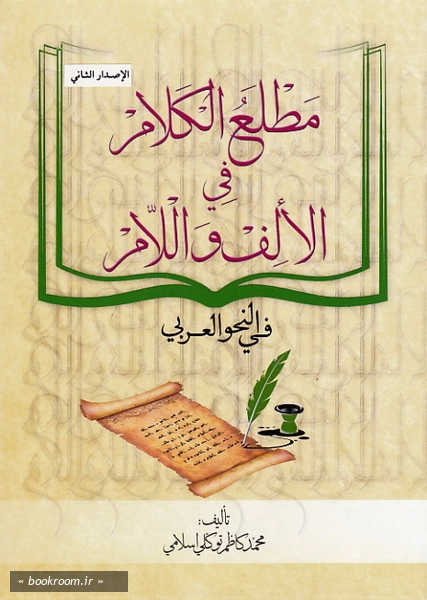 الإصدار الثاني
مَطْلَعُ الْكَلَامِ
فِي
الْأَلِفِ وَاللَّامِ
في النحو العربي
تأليف:
محمدكاظم توكلي اسلامي
« bookroom.ir »